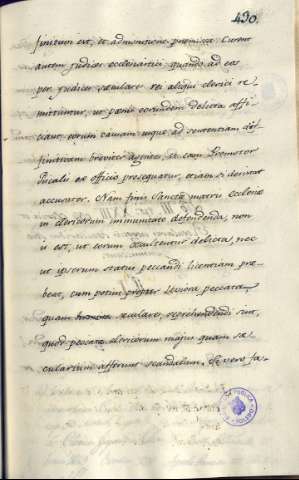 490.
est, et admonitione præmissa. Curent
autem judices ecclesiastici, quando ad eos
per judices sæculares rei aliqui clerici re-
mittuntur, ut pœnis eorundem delicta affi-
ciant, eorum causam usque ad sententiam dif-
finitivam breviter agitare, et eam Promotor
fiscalis ex officio prosequatur, etiam si desistat
accusator. Nam finis Sanctæ matris ecclesiæ
in clericorum immunitate defendenda, non
is est, ut eorum occultentur delicta, nec
ut ipsorum status peccandi licentiam præ-
beat, cum potius propter leviora peccata
quam sæculares, reprehendendi sint,
quod peccata clericorum majus quam sæ-
cularium afferunt scandalum. Si vero fa-